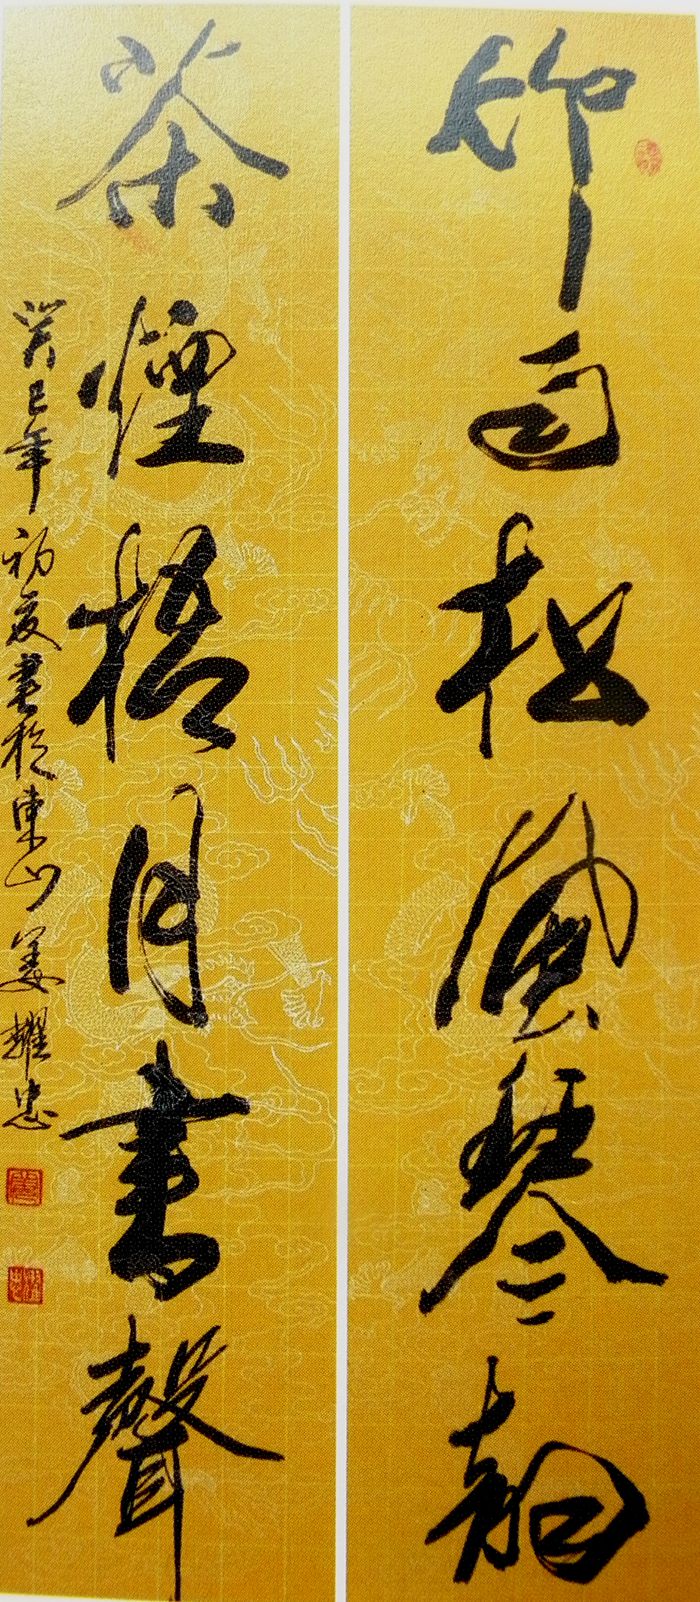 竹雨松風琴韻
茶煙梧月書聲
癸巳年初夏書於東山姜耀忠